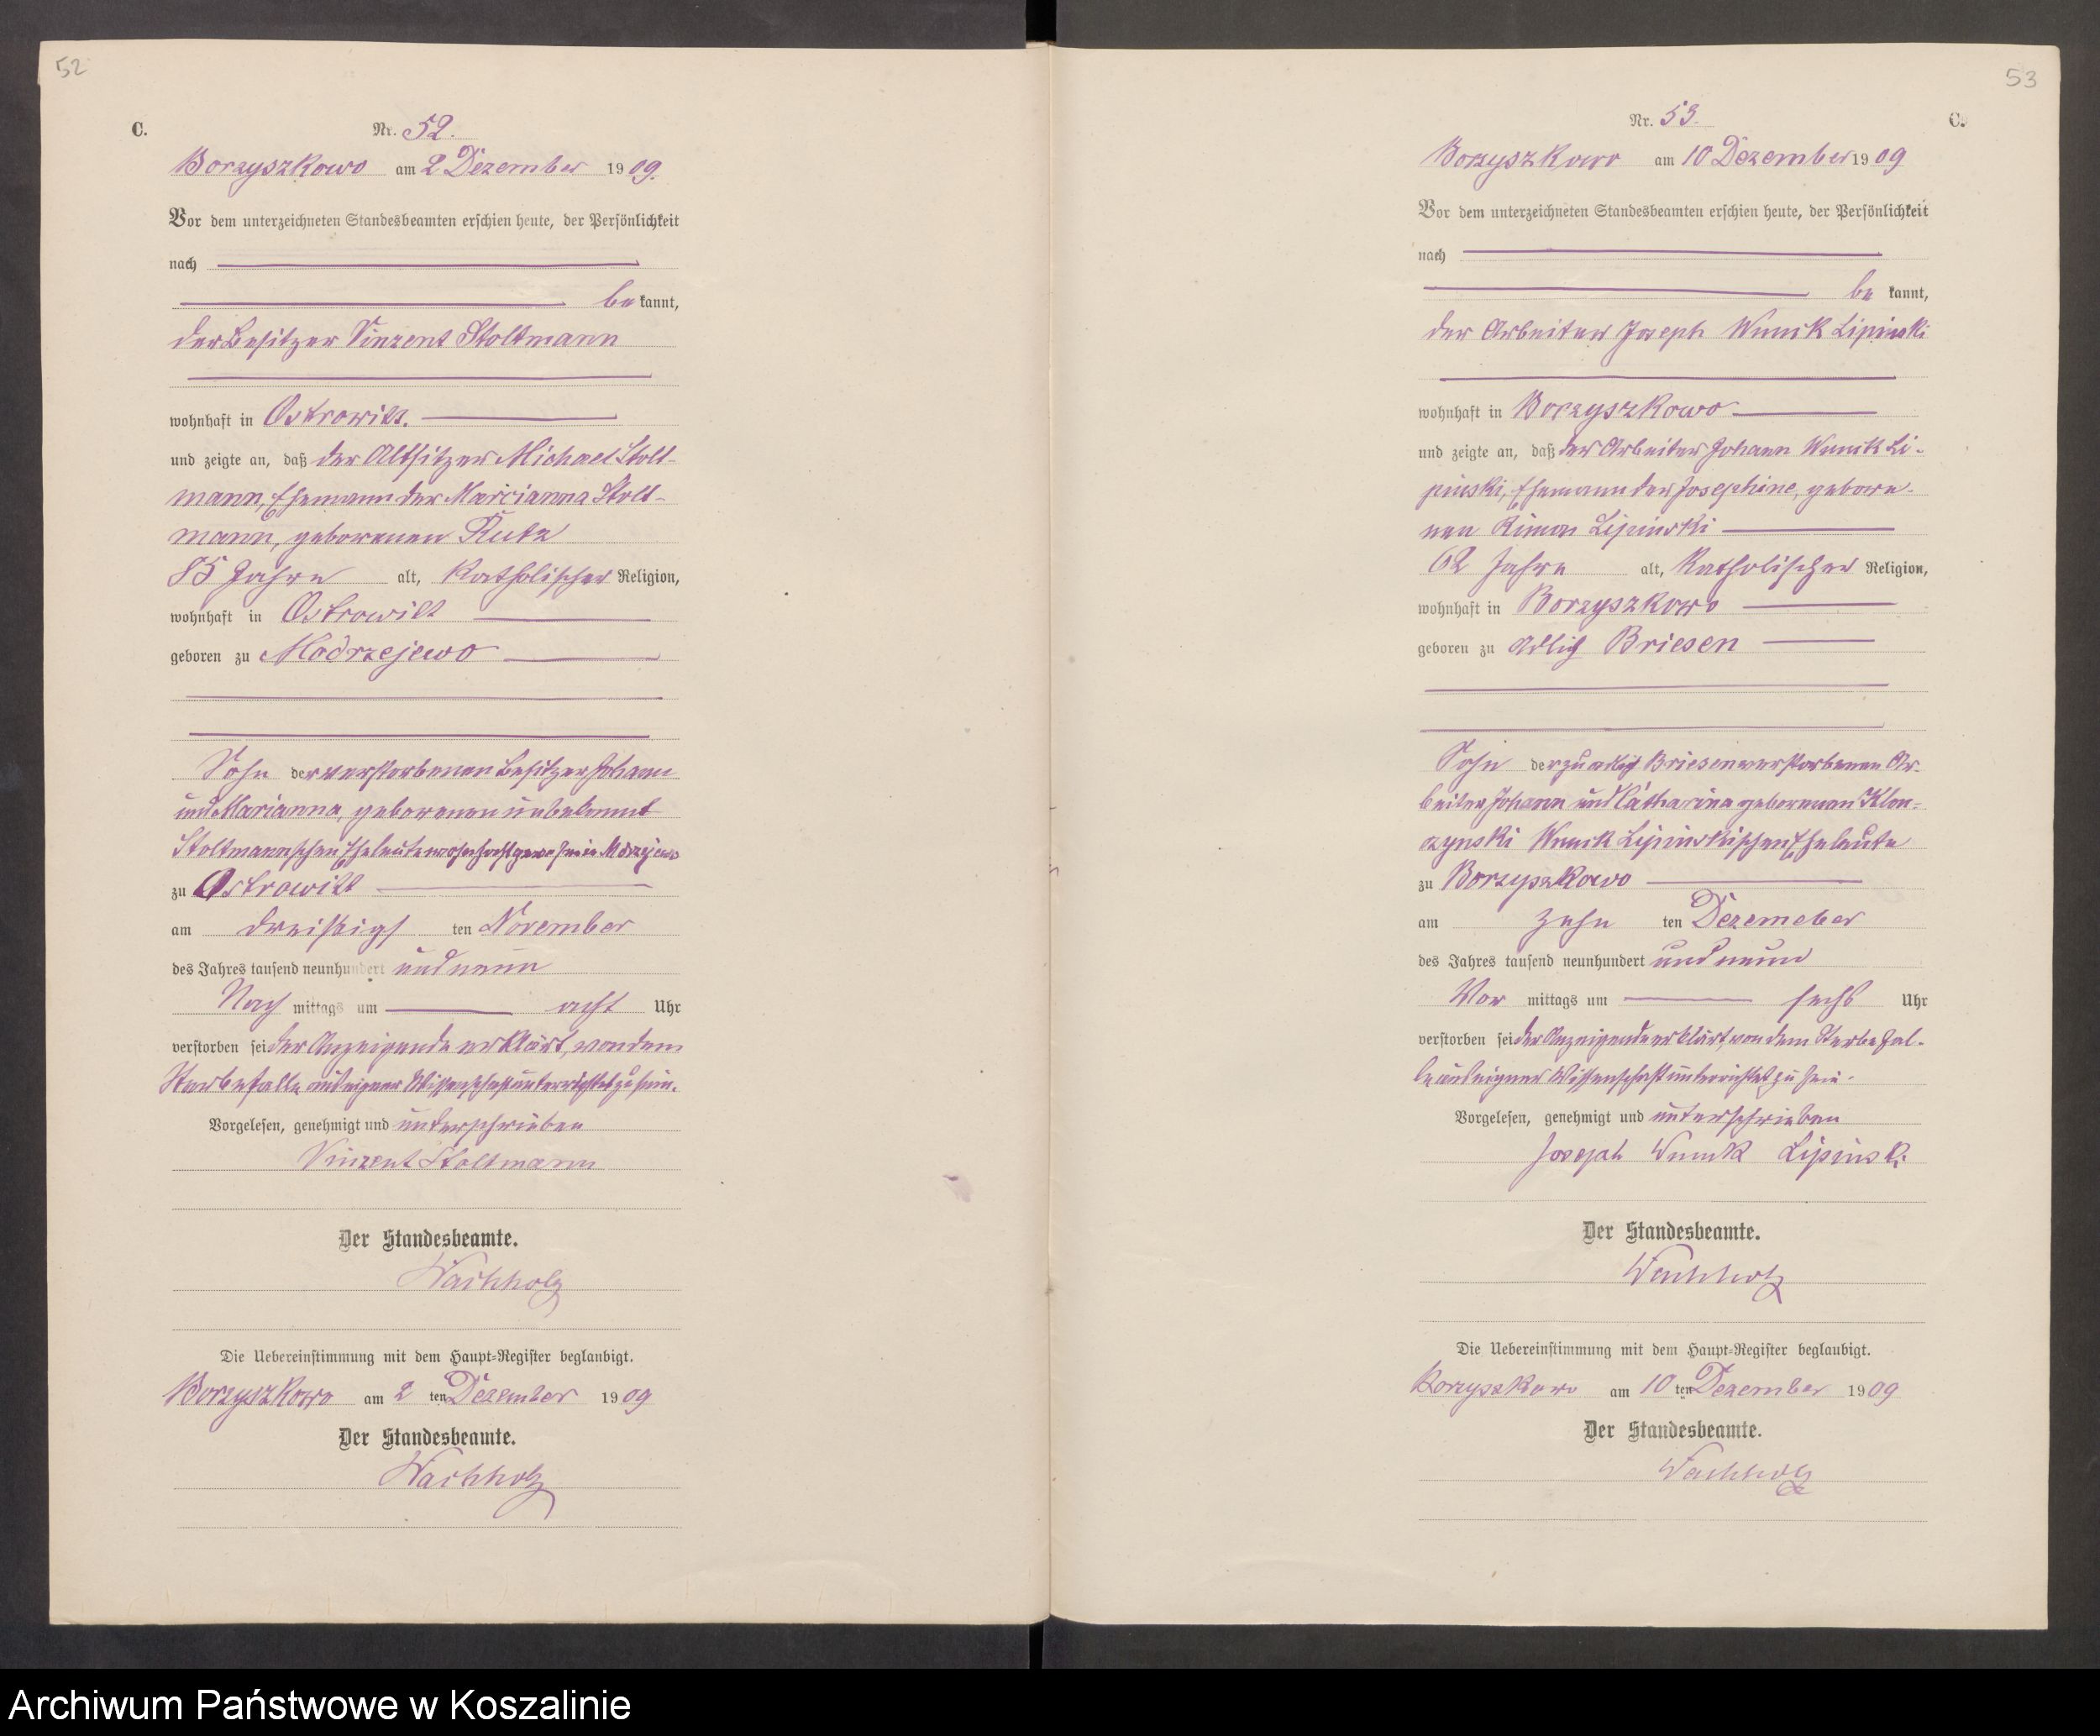 52
C.
Nr. 52.
Borzyszkowo am 2 Dezember 1909.
Vor dem unterzeichneten Standesbeamten erschien heute, der Persönlichkeit
nach
bekannt,
der Besitzer Vinzent Stoltmann
wohnhaft in Ostrowitt.
und zeigte an, daß der Altsitzer Michael Stolt-
mann, Ehemann der Marcianna Stolt-
mann, geborenen Kuta
85 Jahre alt, katholischer Religion,
wohnhaft in Ostrowitt
geboren zu Modrzejewo
Sohn der verstorbenen Besitzer Johann
und Marianna, geborenen unbekannt
Stoltmannschen Eheleute wohnhaft gewesen in
zu Ostrowitt
am dreißigsten November
des Jahres tausend neunhundert und neun
Nach mittags um acht Uhr
verstorben sei der Anzeigende erklärt, von dem
Sterbefalle aus eigener Wissenschaft unterrichtet zu sein.
Vorgelesen, genehmigt und unterschrieben
Vinzent Stoltmann
Der Standesbeamte.
Wachholz
Die Uebereinstimmung mit dem Haupt-Register beglaubigt.
Borzyszkowo am 2 ten Dezember 1909
Der Standesbeamte.
Wachholz
53
Nr. 53.
C.
Borzyszkowo am 10 Dezember 1909
Vor dem unterzeichneten Standesbeamten erschien heute, der Persönlichkeit
nach
bekannt,
der Arbeiter Joseph Wnuk Lipinski
wohnhaft in Borzyszkowo
und zeigte an, daß der Arbeiter Johann Wnuk Li-
pinski, Ehemann der Josephine, gebore-
nen Lipinski
62 Jahre alt, katholischer Religion,
wohnhaft in Borzyszkowo
geboren zu adlig Briesen
Sohn der zu adlig Briesen verstorbenen Ar-
beiter Johann und Catharina geborenen Klon-
czynski Wnuk Lipinskischen Eheleute
zu Borzyszkowo
am zehn ten Dezemeber
des Jahres tausend neunhundert und neun
Vor mittags um sechs Uhr
verstorben sei der Anzeigende erklärt, von dem Sterbefal-
le aus eigner Wissenschaft unterrichtet zu sein.
Vorgelesen, genehmigt und unterschrieben
Joseph Wnuk Lipinski
Der Standesbeamte.
Wachholz
Die Uebereinstimmung mit dem Haupt-Register beglaubigt.
Borzyszkowo am 10 ten Dezember 1909
Der Standesbeamte.
Wachholz
Archiwum Państwowe w Koszalinie